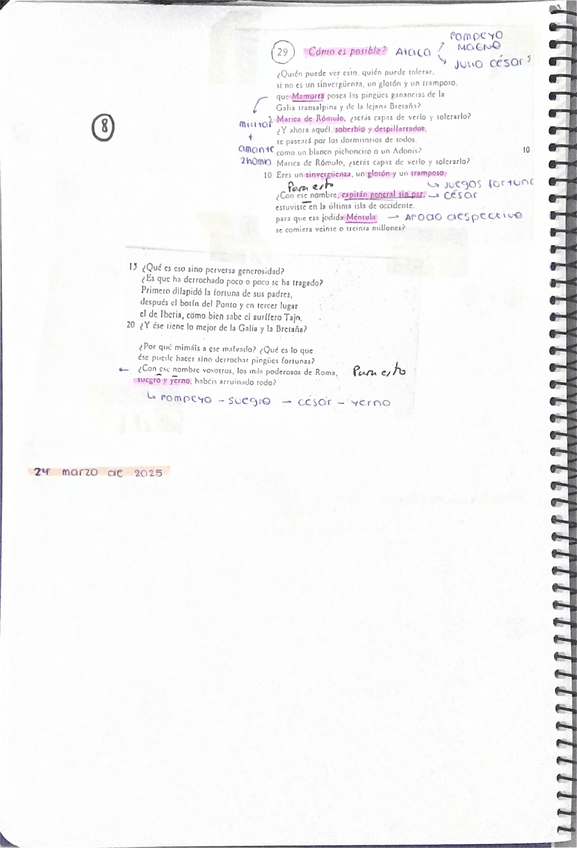 8
29 Cómo es posible? Ataca POMPEYO MAGNO
JULIO CÉSAR
¿Quién puede ver esto, quién puede tolerar,
si no es un sinvergüenza, un glotón y un tramposo,
que Mamurra posea las pingües ganancias de la
Galia transalpina y de la lejana Bretaña?
militar + amante 2 homo
Marica de Rómulo, ¿serás capaz de verlo y tolerarlo?
¿Y ahora aquél, soberbio y despilfarrador,
se paseará por los dormitorios de todos
como un blanco pichoncito o un Adonis? 10
Marica de Rómulo, ¿serás capaz de verlo y tolerarlo?
10 Eres un sinvergüenza, un glotón y un tramposo.
Para esto juegos fortuna
¿Con ese nombre, capitán general sin par, césar
estuviste en la última isla de occidente,
para que esa jodida Méntula apodo despectivo
se comiera veinte o treinta millones?
15 ¿Qué es eso sino perversa generosidad?
¿Es que ha derrochado poco o poco se ha tragado?
Primero dilapidó la fortuna de sus padres,
después el botín del Ponto y en tercer lugar
el de Iberia, como bien sabe el aurífero Tajo.
20 ¿Y ése tiene lo mejor de la Galia y la Bretaña?
¿Por qué mimáis a ese malvado? ¿Qué es lo que
ése puede hacer sino derrochar pingües fortunas?
¿Con ese nombre vosotros, los más poderosos de Roma, Para esto
suegro y yerno, habéis arruinado todo?
POMPEYO - suegro - césar - yerno
24 marzo de 2025